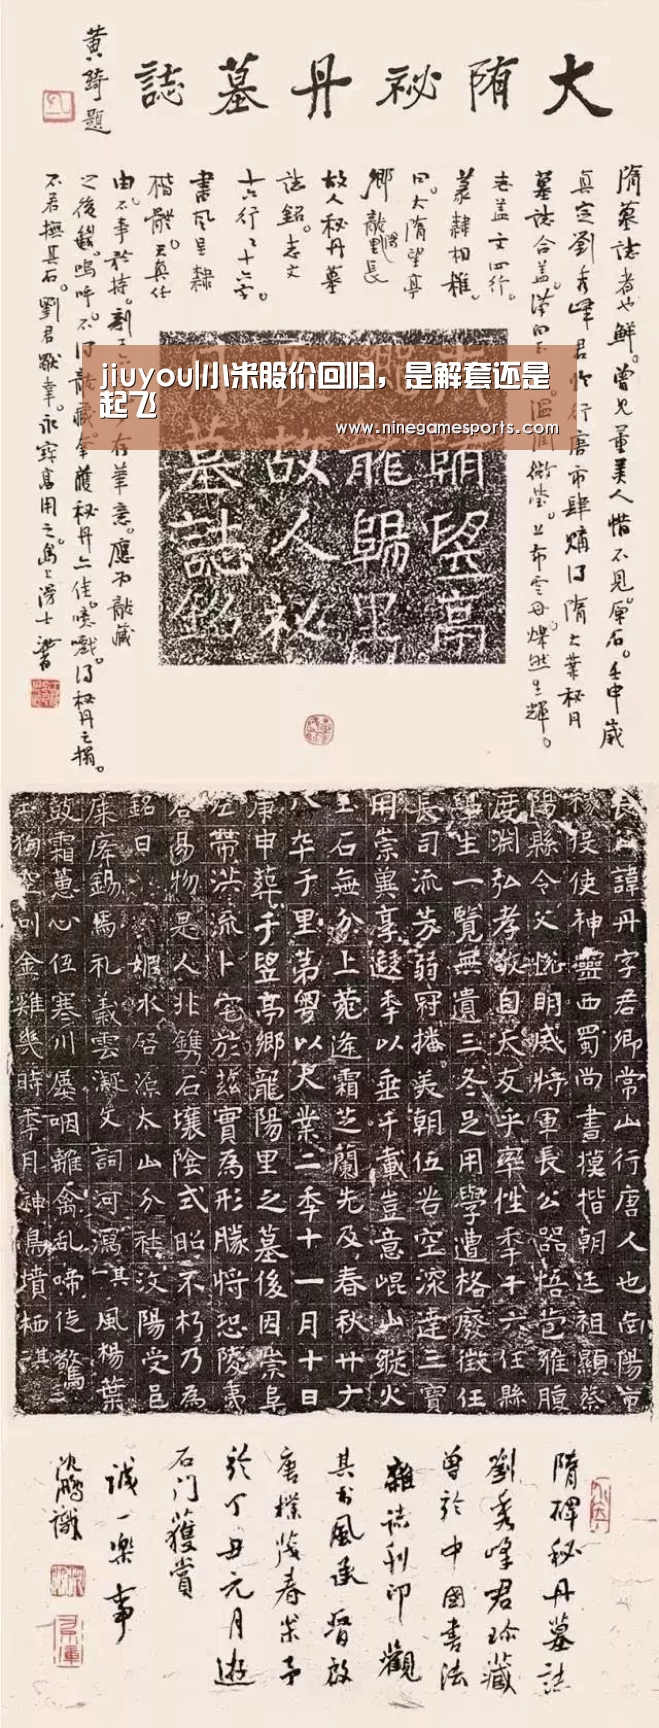 大隋祕丹墓誌
黄綺題
隋墓誌者也鮮。曾見董美人惜不見原石。壬申歲
真定劉秀峰君於行唐市肆購得隋大業秘丹
墓誌合蓋。漢白玉。温潤微瑩。上布雲母燦然生輝。
志蓋文四行。
篆隸相雜。
曰。大隋望亭
鄉龍陽里長
故人秘丹墓
誌銘。志文
十六行行十六字。
書風呈隸
楷體。天真任
由。不事矜持。刻 存筆意。應為 藏
之後 嗚呼。不得 秘丹亦佳。噫嚱。得秘丹之搨。
不君撫其石。劉君 永寶
jiuyou|小米股价回归，是解套还是
起飞
www.ninegamesports.com
隋望亭
龍陽里
長故人祕
丹墓誌銘
長 諱丹字君卿常山行唐人也向陽市
使神靈西蜀尚書模楷朝廷祖顯蔡
陽縣令父悅明威將軍長公器悟苞雅腹
度淵弘孝敬自天友乎率性秊十六任縣
學生一覽無遺三冬足用學遭格廢徵任
長司流芳弱冠播美朝伍岩空深達三寶
用崇冀享遐秊以垂千載豈意崐山縱火
玉石無分上苑逢霜芝蘭先及春秋廿有
八卒于里第粤以大業二秊十一月十日
庚申葬于望亭鄉龍陽里之墓後因崇阜
左帶洪流卜宅於茲實為形勝將恐陵夷
谷易物是人非鐫石壤陰式昭不朽乃為
銘曰 媚水啓源太山分祉汶陽受邑
糜席錫馬礼義雲凝文詞河瀉其一風楊葉
鼓霜蕙心伍寒川屡咽離禽乱啼徒驚
玉狗空叫金雞幾時秊月神鳥墳栖
隋碑秘丹墓誌
劉秀峰君珍藏
曾於中國書法
雜誌刊印觀
其書風承晉啟
唐樸茂春米予
於丁丑元月遊
石门獲賞
誠一樂事
沈鵬識